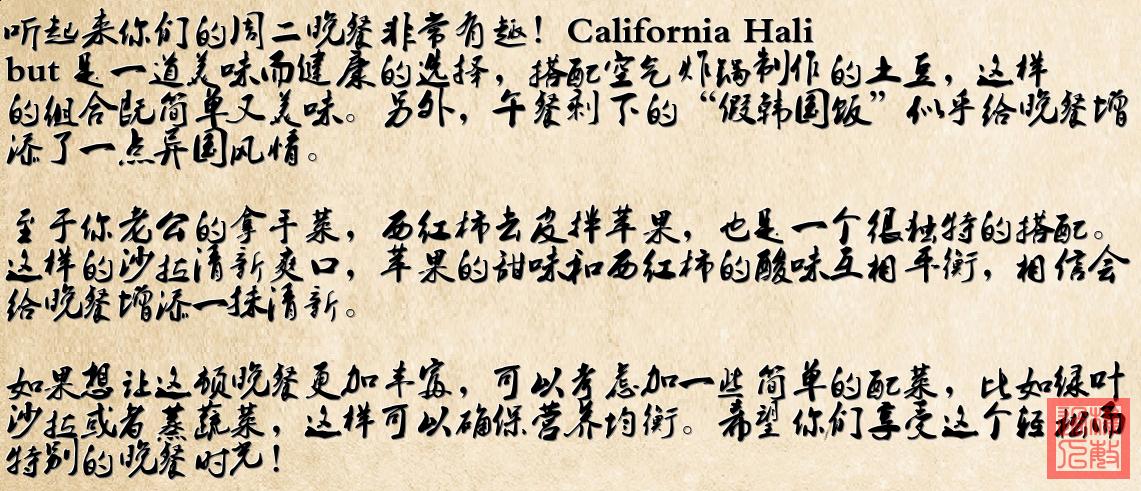 听起来你们的周二晚餐非常有趣！California Hali
but 是一道美味而健康的选择，搭配空气炸锅制作的土豆，这样
的组合既简单又美味。另外，午餐剩下的“假韩国饭”似乎给晚餐增
添了一点异国风情。
至于你老公的拿手菜，西红柿去皮拌苹果，也是一个很独特的搭配。
这样的沙拉清新爽口，苹果的甜味和西红柿的酸味互相平衡，相信会
给晚餐增添一抹清新。
如果想让这顿晚餐更加丰富，可以考虑加一些简单的配菜，比如绿叶
沙拉或者蒸蔬菜，这样可以确保营养均衡。希望你们享受这个轻松而
特别的晚餐时光！